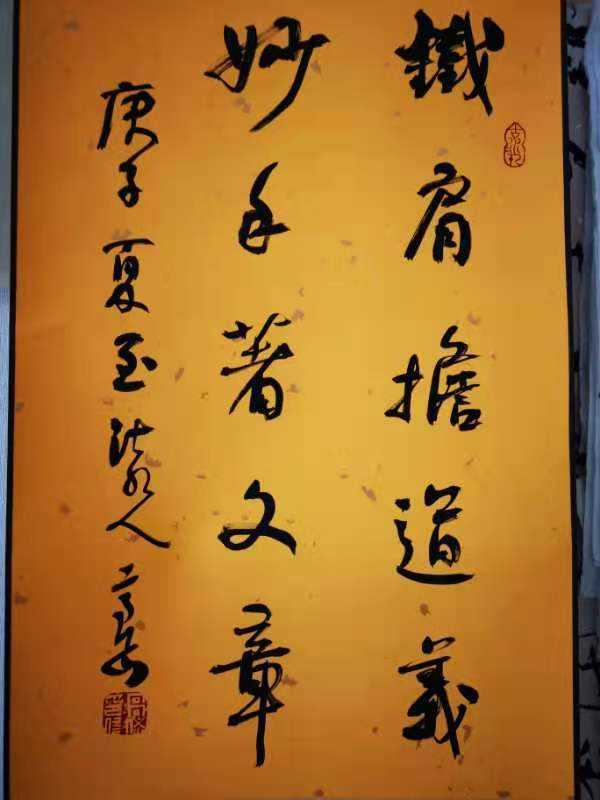 鐵肩擔道義
妙手著文章
庚子夏至 人